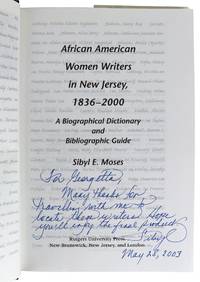 African American
Women Writers
in New Jersey,
1836–2000
A Biographical Dictionary
and
Bibliographic Guide
Sibyl E. Moses
For Georgetta,
Many thanks for
travelling with me to
locate these writers! Hope
you'll enjoy the final product.
Sibyl
Rutgers University Press
New Brunswick, New Jersey, and London
May 28, 2003